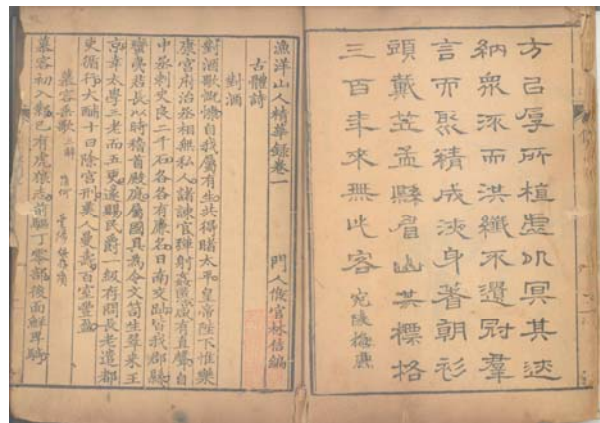 方己厚所植虛以冥其遊
納眾流而洪纖不遺冠羣
言而聚精成淡身著朝衫
頭戴笠孟縣眉山其標格
三百年來無此客 宛陵梅庚
漁洋山人精華錄卷一
門人侯官林佶編
古體詩
對酒
對酒歌慨慷自我屬有生共得睹太平皇帝陛下惟樂
康官府治丞相無私人諸諫官彈射姦慝有直聲自
中丞刺史良二千石各各有廉名日南交趾皆我郡縣
蠻夷君長以時稽首殿庭屬國具為令文笥生翠來王
京辟太學三老而五更遂賜民爵一級存問長老遣都
吏循行大酺十日除官刑美人曼壽百室豐盈
慕容垂歌三解
慕容初入鄴已有虎狼志前驅丁零部後面鮮卑騎